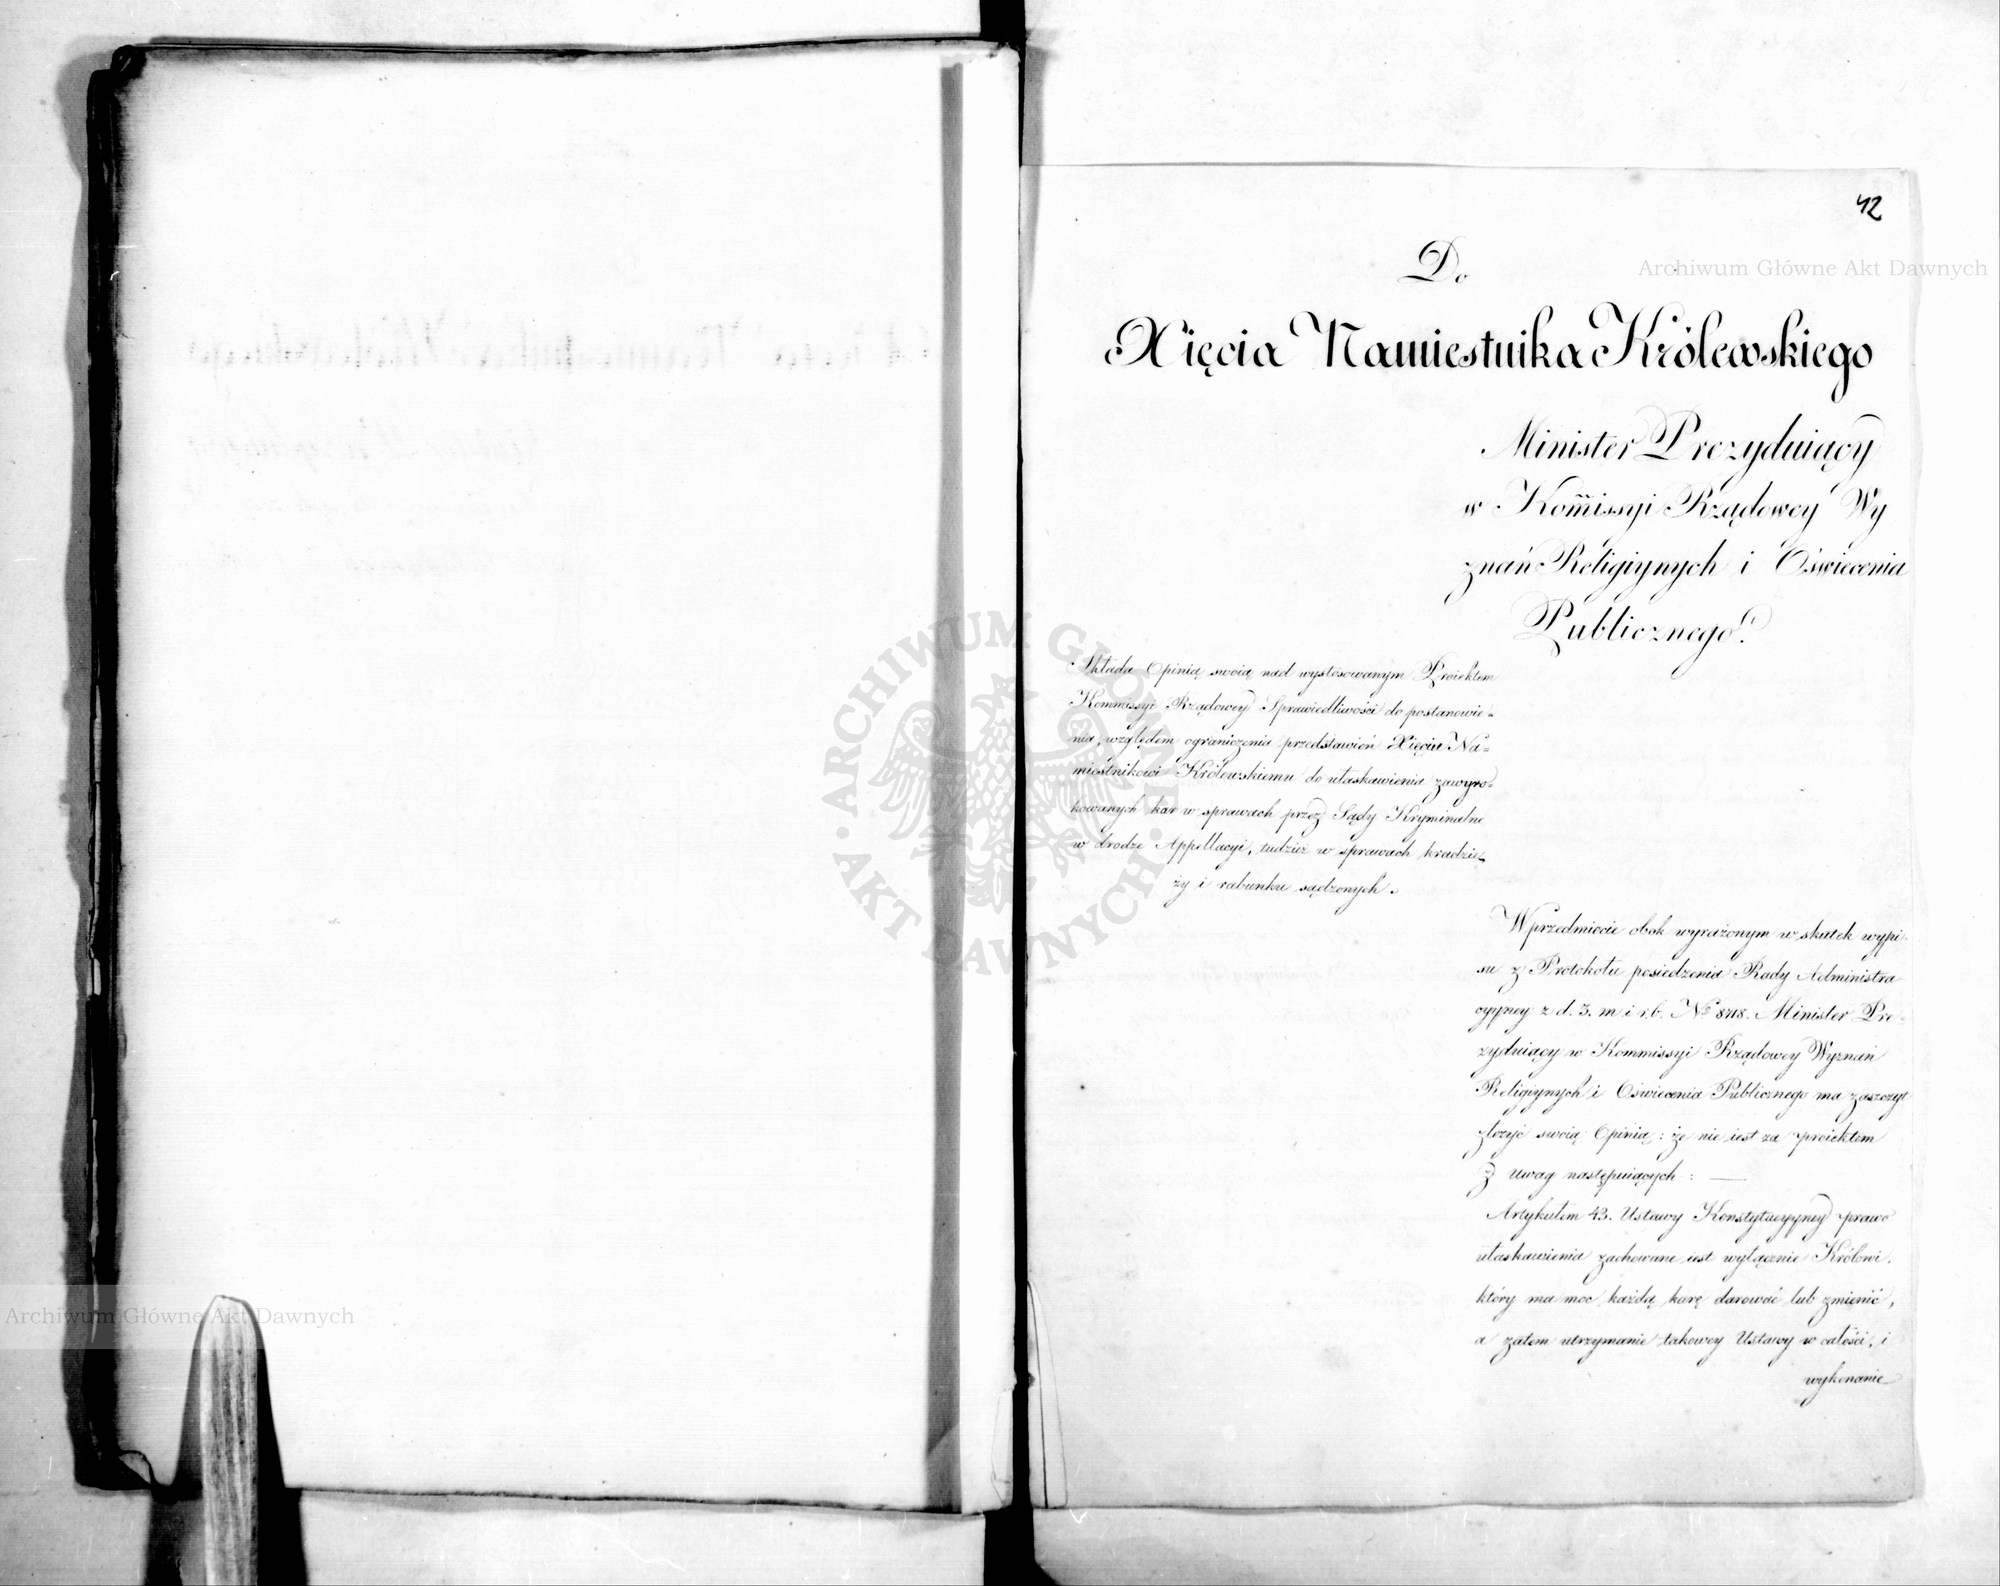 42
Do
Xięcia Namiestnika Królewskiego
Minister Prezyduiący
w Kom̃issyi Rządowey Wy
znań Religiynych i Oświecenia
Publicznego.
Składa Opinią swoią nad wystosowanym Proiektem
Kommissyi Rządowey Sprawiedliwości do postanowie=
nia, względem ograniczenia przedstawień Xięciu Na=
miestnikowi Królewskiemu do ułaskawienia zawyro=
kowanych kar w sprawach przez Sądy Kryminalne
w drodze Appellacyi, tudzież w sprawach kradzie=
ży i rabunku sądzonych.
W przedmiocie obok wyrażonym w skutek wypi=
su z Protokołu posiedzenia Rady Administra
cyyney z d. 3. m i r.b. No 8718. Minister Pre=
zyduiący w Kommissyi Rządowey Wyznań
Religiynych i Oświecenia Publicznego ma zaszczyt
złożyć swoią Opinią: że nie iest za proiektem
z uwag następuiących: —
Artykułem 43. Ustawy Konstytucyyney prawo
ułaskawienia zachowane iest wyłącznie Królowi,
który ma moc każdą karę darować lub zmienić,
a zatem utrzymanie takowey Ustawy w całości, i
wykonanie
Archiwum Główne Akt Dawnych
Archiwum Główne Akt Dawnych
ARCHIWUM GŁÓWNE AKT DAWNYCH